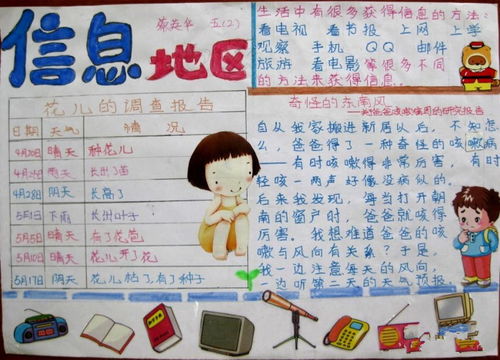 信息地区
五(2)
生活中有很多获得信息的方法:
看电视 看书报 上网 上学
观察 手机 QQ 邮件
旅游 看电影 等很多不同
的方法来获得信息。
花儿的调查报告
日期 天气 情况
4月20日 晴天 种花儿
4月24日 雨天 长出了苗
4月28日 阴天 长高了
5月1日 下雨 长出叶子
5月5日 晴天 有了花苞
5月10日 晴天 花儿开了花
5月17日 阴天 花儿枯了,有了种子
奇怪的东南风
自从我家搬进新居以后,不知怎
么,爸爸得了一种奇怪的咳嗽病
——有时咳嗽得非常厉害,有时
轻咳一两声好像没病似的。
后来我发现,每当打开朝
南的窗户时,爸爸就咳得
厉害。我想难道爸爸的咳
嗽与风向有关系?于是,
我一边注意每天的风向,
一边听第二天的天气预报